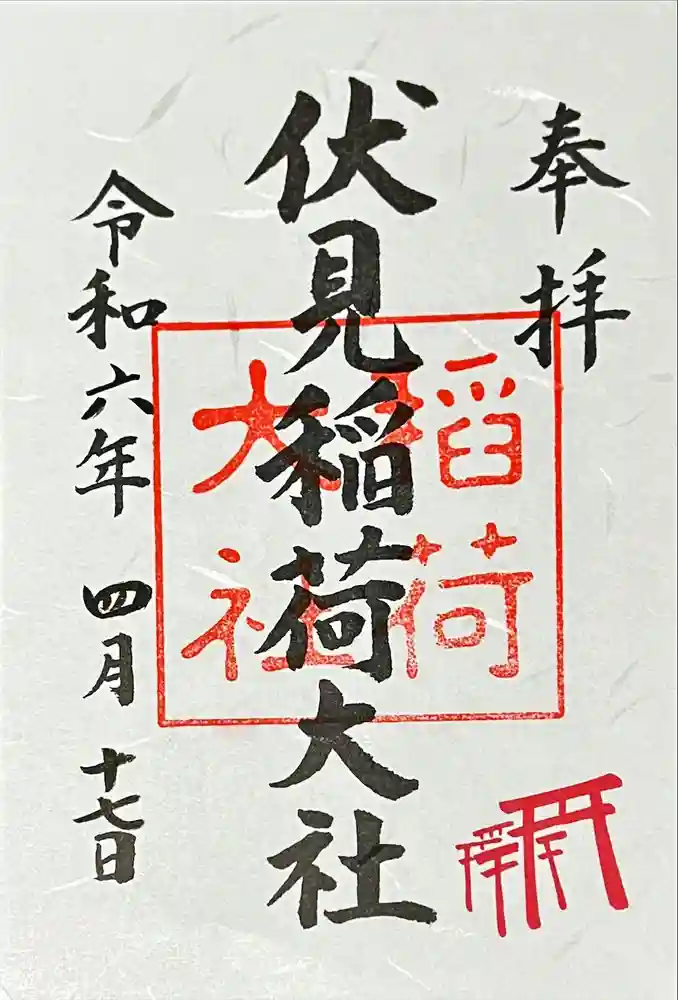 奉拝
伏見稲荷大社
稲荷
大社
令和六年 四月 十七日